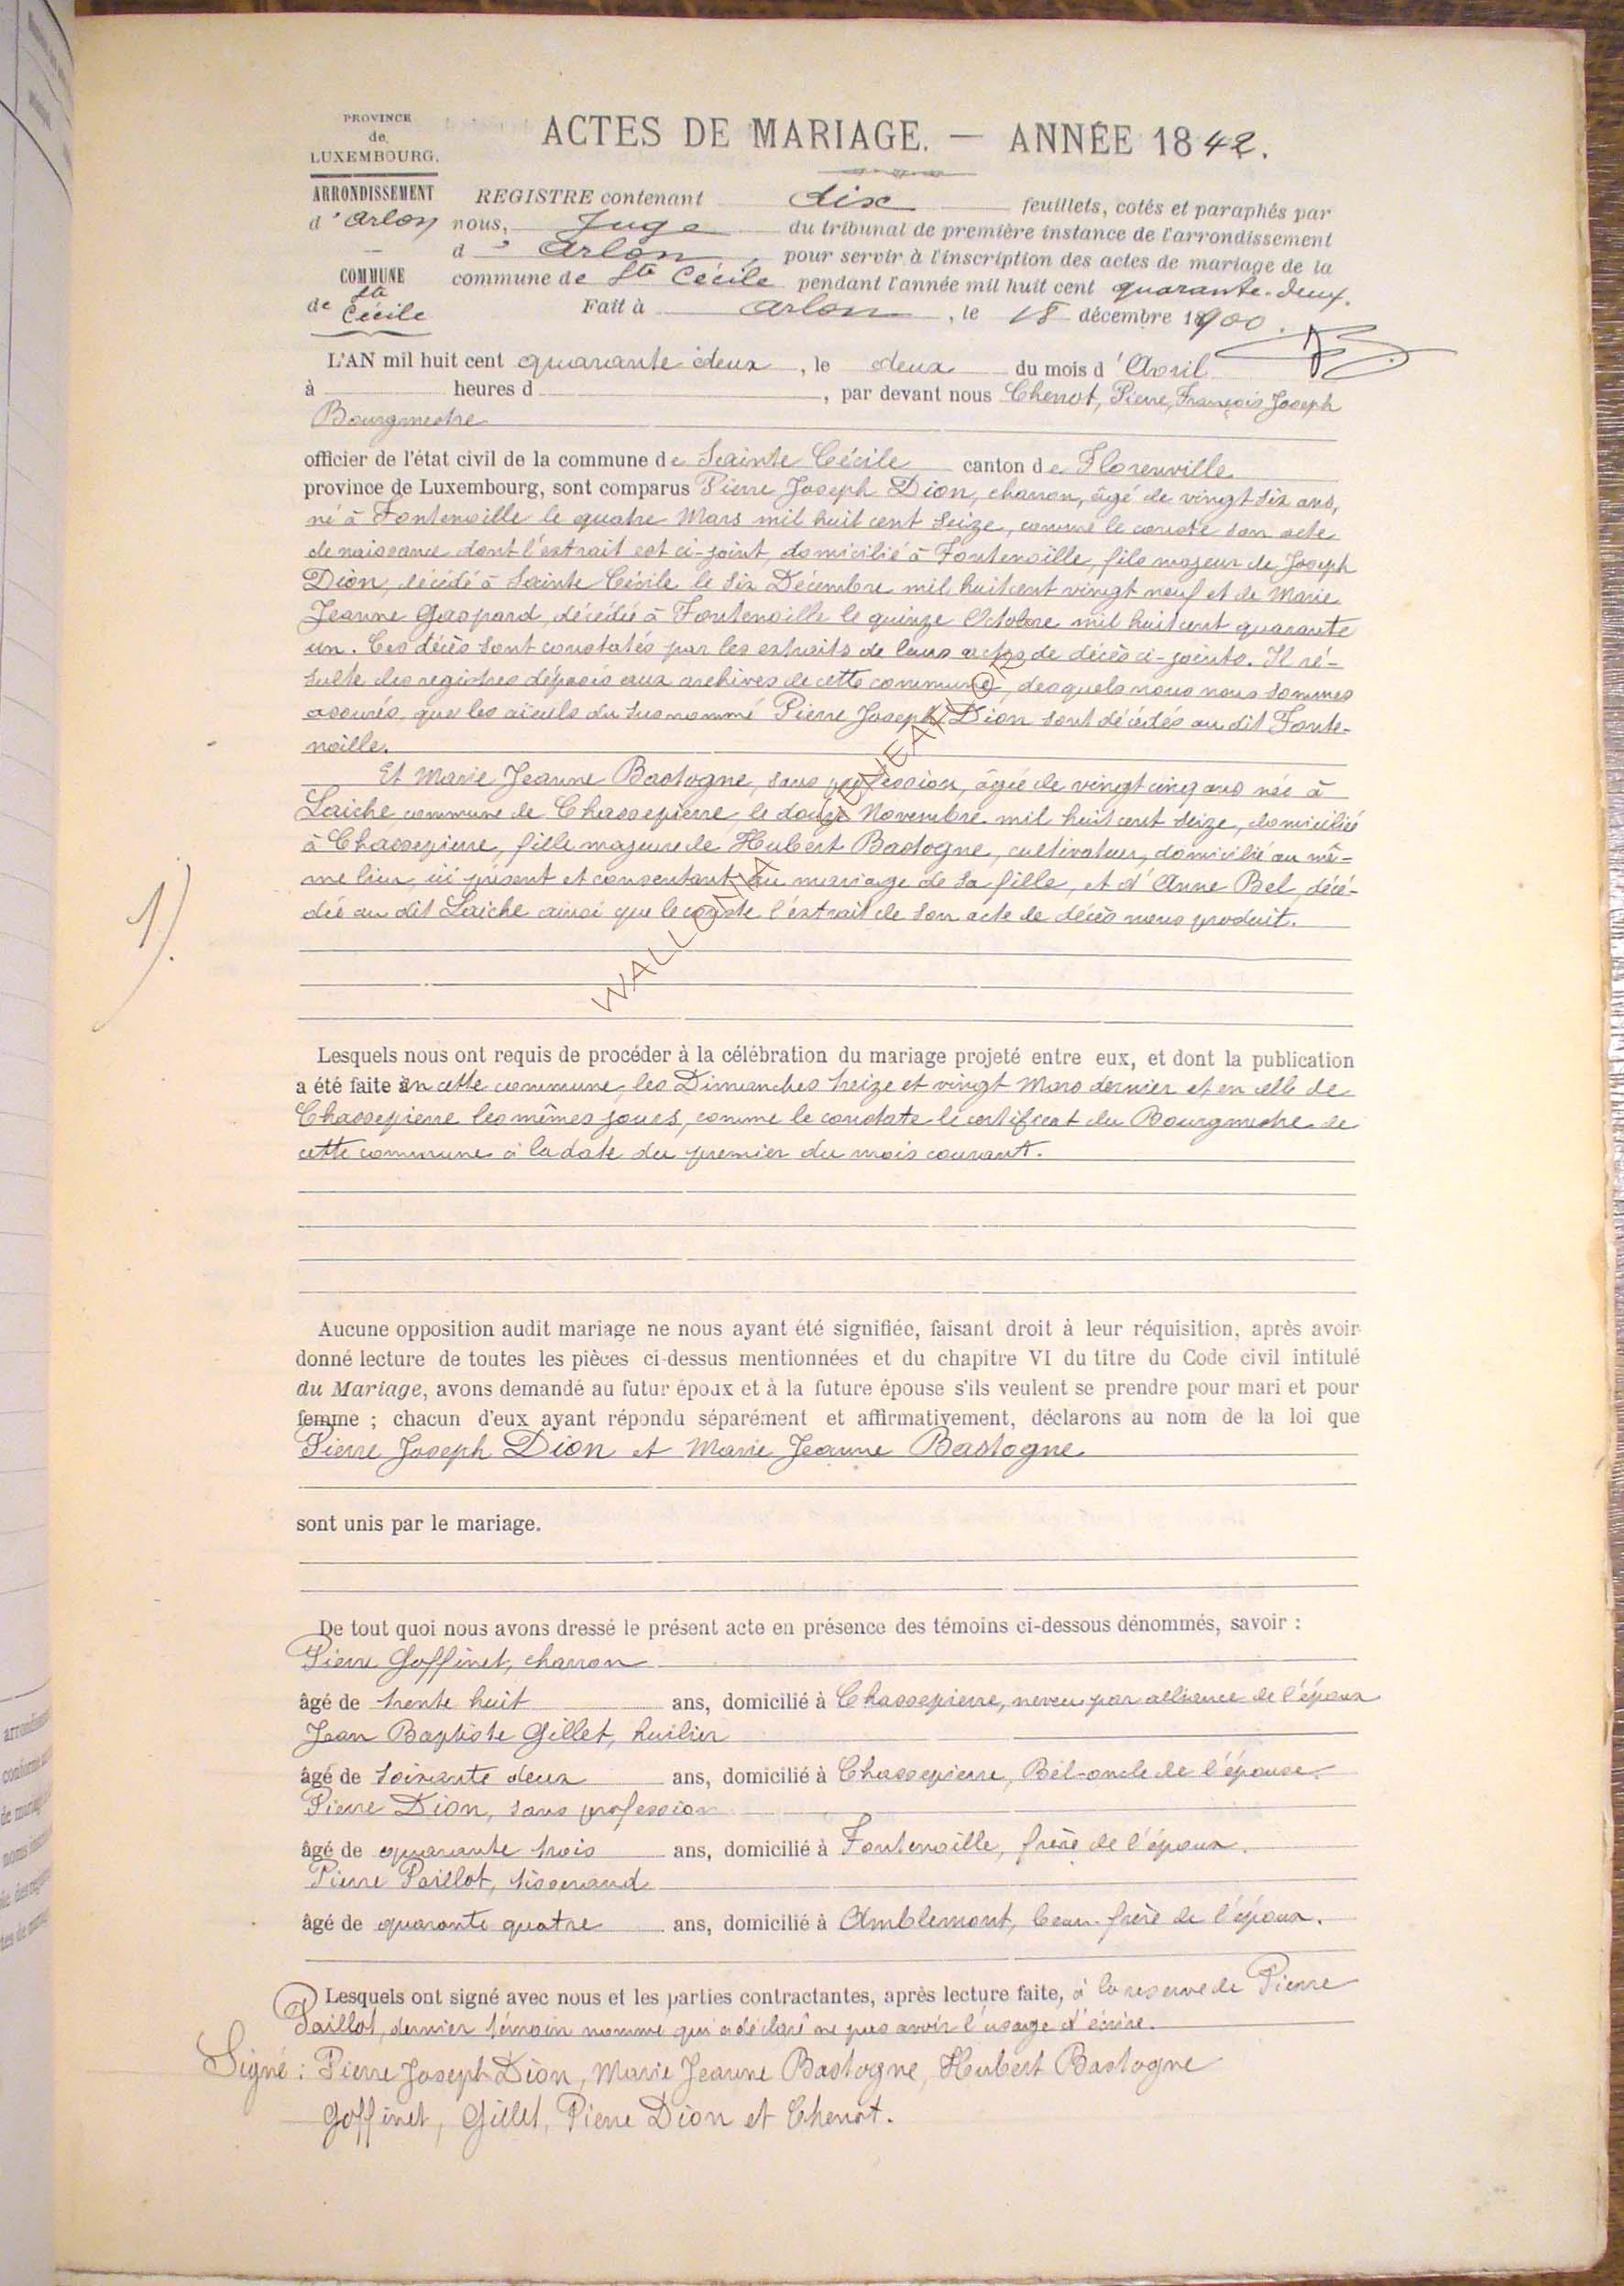 PROVINCE
de
LUXEMBOURG.
ARRONDISSEMENT
d'Arlon
COMMUNE
de Ste
Cécile
ACTES DE MARIAGE. — ANNÉE 1842.
REGISTRE contenant dix feuillets, cotés et paraphés par
nous, Juge du tribunal de première instance de l'arrondissement
d'Arlon, pour servir à l'inscription des actes de mariage de la
commune de Ste Cécile pendant l'année mil huit cent quarante-deux.
Fait à Arlon, le 18 décembre 1900.
L'AN mil huit cent quarante deux, le deux du mois d'Avril
à heures d , par devant nous Chenot, Pierre, François Joseph
Bourgmestre
officier de l'état civil de la commune de Sainte Cécile canton de Florenville
province de Luxembourg, sont comparus Pierre Joseph Dion, charron, âgé de vingt six ans,
né à Fontenoille le quatre Mars mil huit cent seize, comme le constate son acte
de naissance dont l'extrait est ci-joint, domicilié à Fontenoille, fils majeur de Joseph
Dion, décédé à Sainte Cécile le six Décembre mil huit cent vingt neuf et de Marie
Jeanne Gaspard, décédée à Fontenoille le quinze Octobre mil huit cent quarante
un. Ces décès sont constatés par les extraits de leurs actes de décès ci-joints. Il ré-
sulte des registres déposés aux archives de cette commune, desquels nous nous sommes
assurés, que les aïeuls du susnommé Pierre Joseph Dion sont décédés au dit Fonte-
noille.
Et Marie Jeanne Bastogne, sans profession, âgée de vingt cinq ans née à
Laiche commune de Chassepierre, le douze Novembre mil huit cent seize, domiciliée
à Chassepierre, fille majeure de Hubert Bastogne, cultivateur, domicilié au mê-
me lieu, ici présent et consentant au mariage de sa fille, et d'Anne Bel, décé-
dée au dit Laiche ainsi que le constate l'extrait de son acte de décès nous produit.
1).
WALLONIA GENEANEOR
Lesquels nous ont requis de procéder à la célébration du mariage projeté entre eux, et dont la publication
a été faite en cette commune, les Dimanches treize et vingt Mars dernier et en celle de
Chassepierre les mêmes jours, comme le constate le certificat du Bourgmestre de
cette commune à la date du premier du mois courant.
Aucune opposition audit mariage ne nous ayant été signifiée, faisant droit à leur réquisition, après avoir
donné lecture de toutes les pièces ci-dessus mentionnées et du chapitre VI du titre du Code civil intitulé
du Mariage, avons demandé au futur époux et à la future épouse s'ils veulent se prendre pour mari et pour
femme ; chacun d'eux ayant répondu séparément et affirmativement, déclarons au nom de la loi que
Pierre Joseph Dion et Marie Jeanne Bastogne
sont unis par le mariage.
De tout quoi nous avons dressé le présent acte en présence des témoins ci-dessous dénommés, savoir :
Pierre Goffinet, charron
âgé de trente huit ans, domicilié à Chassepierre, neveu par alliance de l'époux
Jean Baptiste Gillet, huilier
âgé de soixante deux ans, domicilié à Chassepierre, Bel-oncle de l'épouse.
Pierre Dion, sans profession
âgé de quarante trois ans, domicilié à Fontenoille, frère de l'époux.
Pierre Paillot, tisserand
âgé de quarante quatre ans, domicilié à Amblemont, beau-frère de l'époux.
Lesquels ont signé avec nous et les parties contractantes, après lecture faite, à la reserve de Pierre
Paillot, dernier témoin nommé qui a déclaré ne pas avoir l'usage d'écrire.
Signé : Pierre Joseph Dion, Marie Jeanne Bastogne, Hubert Bastogne
Goffinet, Gillet, Pierre Dion et Chenot.